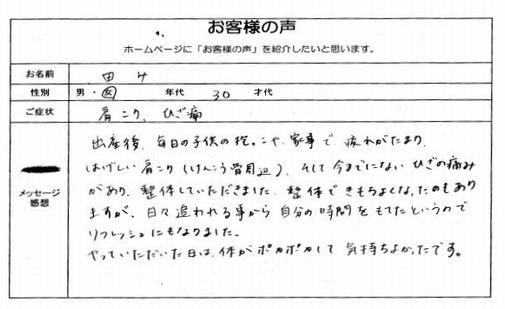 お客様の声
ホームページに「お客様の声」を紹介したいと思います。
お名前 田
性別 男・女 年代 30 才代
ご症状 肩こり、ひざ痛
メッセージ
感想
出産後、毎日の子供の抱っこや、家事で疲れがたまり、
はげしい肩こり(けんこう骨周辺)、そして今までにないひざの痛み
があり、整体していただきました。整体できもちよくなったのもあり
ますが、日々追われる事から自分の時間をもてたというので
リフレッシュにもなりました。
やっていただいた日は、体がポカポカして気持ちよかったです。